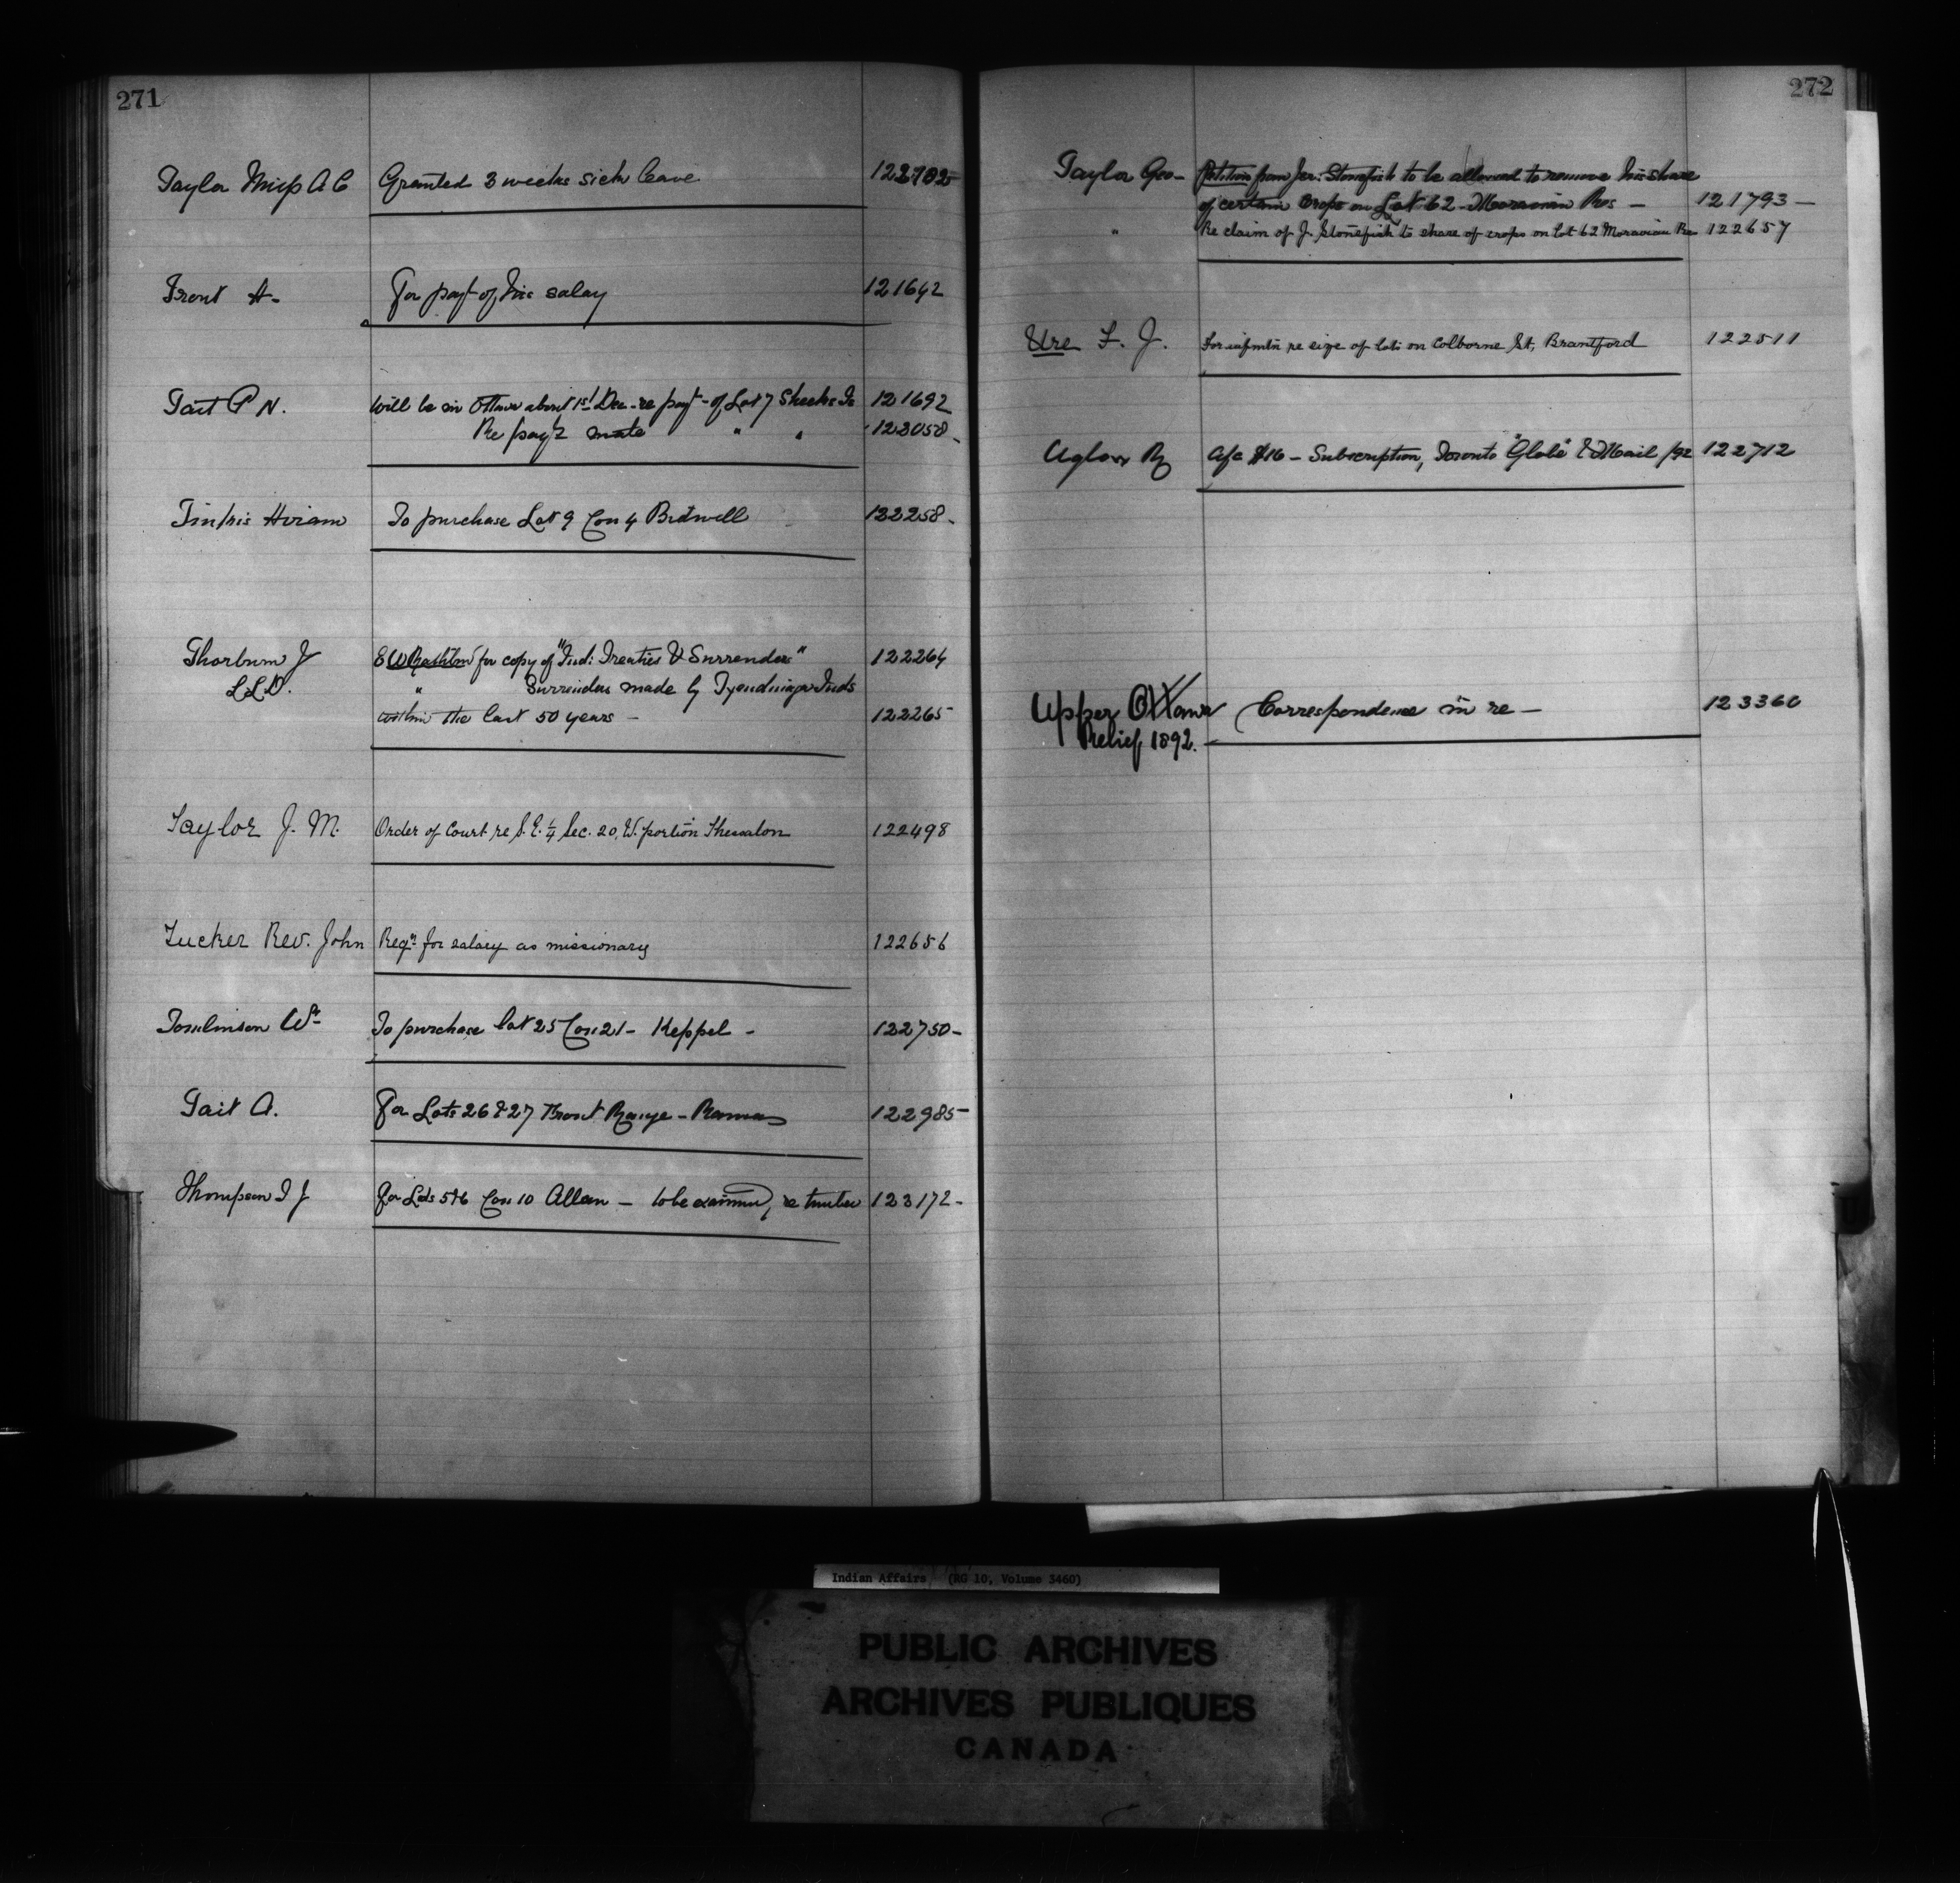 271
Taylor Miss A C Granted 3 weeks sick leave 122702
Trout A- For payt of his salary 121642
Tait P N. Will be in Ottawa about 1st Dec - re payt - of Lot 7 Sheeks Is 121692
Re payt mate " " 123058-
Hiram To purchase Lot 9 Con 4 Bidwell 122258-
Thorburn J E W for copy of "Ind: Treaties & Surrenders" 122264
LLD. " Surrenders made by Tyendinaga Inds
within the last 50 years - 122265
Taylor J. M. Order of Court re S.E. 1/4 Sec. 20, W. portion Thessalon 122498
Tucker Rev. John Reqn for salary as missionary 122656
Tomlinson Wm To purchase lot 25 Con 21 - Keppel - 122750-
Tait A. For Lots 26 & 27 Front Range - Rama 122985-
Thompson I J For Lots 5 & 6 Con 10 Allan - to be examined, re timber 123172-
272
Taylor Geo- Petition from Jer: Stonefish to be allowed to remove his share
of certain Crops on Lot 62 - Moravian Res - 121793-
" Re claim of J. Stonefish to share of crops on Lot 62 Moravian Re 122657
Ure F. J. For infmtn re size of lots on Colborne St, Brantford 122511
Uglow R a/c $16 - Subscription, Toronto "Globe" & Mail /92 122712
Upper Ottawa Correspondence in re - 123360
Relief 1892.
Indian Affairs (RG 10, Volume 3460)
PUBLIC ARCHIVES
ARCHIVES PUBLIQUES
CANADA